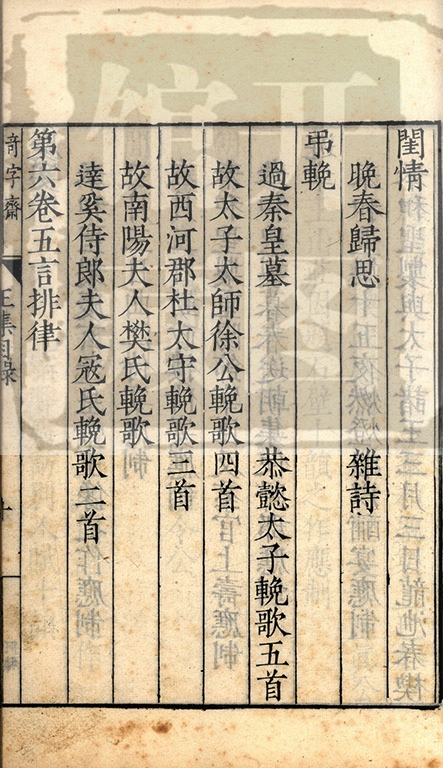 閨情
晚春歸思 雜詩
弔輓
過秦皇墓 恭懿太子輓歌五首
故太子太師徐公輓歌四首
故西河郡杜太守輓歌三首
故南陽夫人樊氏輓歌
達奚侍郎夫人寇氏輓歌二首
第六卷五言排律
奇字齋
王集目錄
十